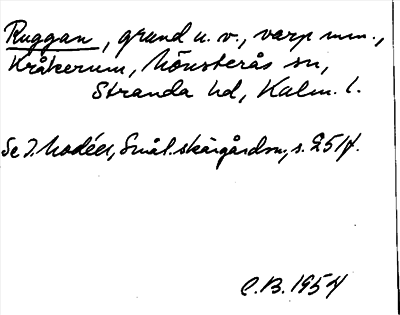 Ruggan, grund u. v., varp mm.,
Kråkerum, Mönsterås sn,
Stranda hd, Kalm. l.
Se J. Modéer, Smål. skärgårdsn., s. 251f.
C.B. 1954